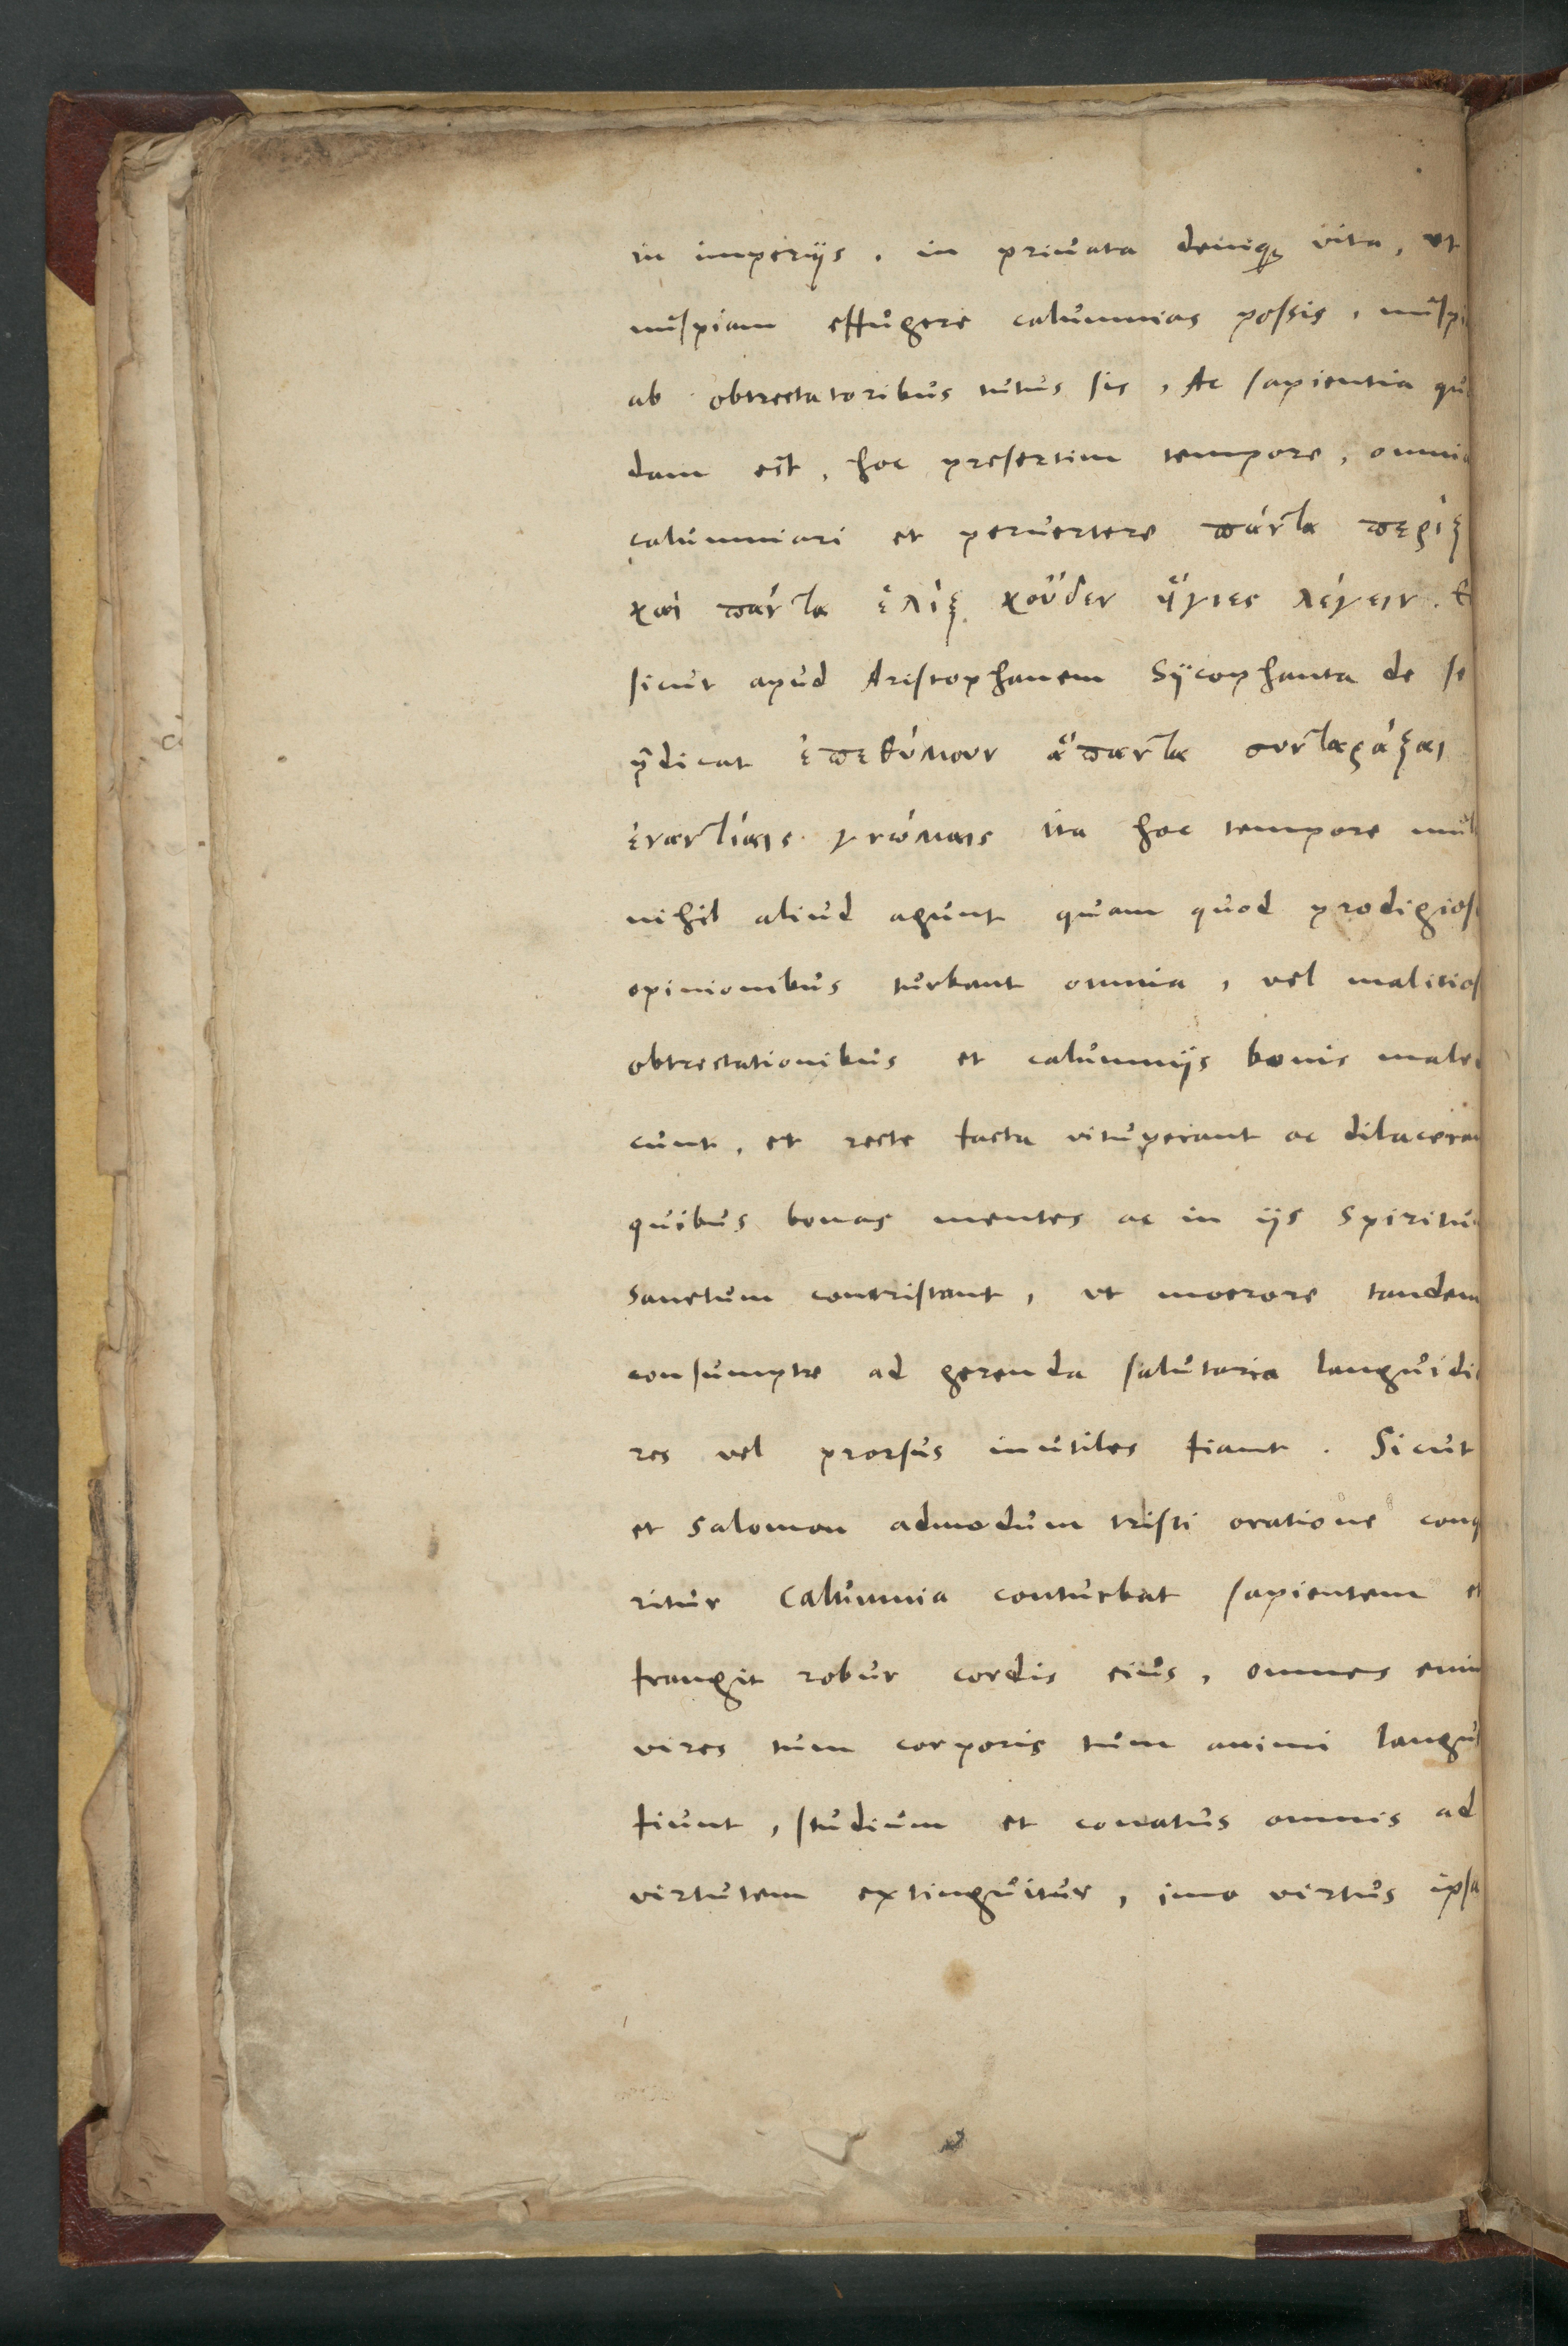 in imperijs, in priuata deniq; vita, ut
nuspiam effugere calumnias possis, nuspi
ab obtrectatoribus tutus sis, Ac sapientia qu
dam est, hoc presertim tempore, omnia
calumniari et peruertere πάντα πέριξ
καὶ πάντα ἕλιξ κοὔδεν ὕγιες λέγειν. Et
sicut apud Aristophanem Sÿcophanta de se
p̄dicat ἐπεθύμουν ἅπαντα συνταράξαι
ἐναντίαις γνώμαις ita hoc tempore mul
nihil aliud agunt quam quod prodigios
opinionibus turbant omnia, vel malitios
obtrectationibus et calumnijs bonis maled
cunt, et recte facta vituperant ac dilaceran
quibus bonas mentes ac in ijs Spiritu
sanctum contristant, ut moerore tandem
consumptę ad gerenda salutaria languidio
res vel prorsus inutiles fiant. Sicut
et Salomon admodum tristi oratione conq
ritur Calumnia conturbat sapientem et
frangit robur cordis eius, omnes enim
vires tum corporis tum animi langui
fiunt, studium et conatus omnis ad
virtutem extinguitur, imo virtus ipsa